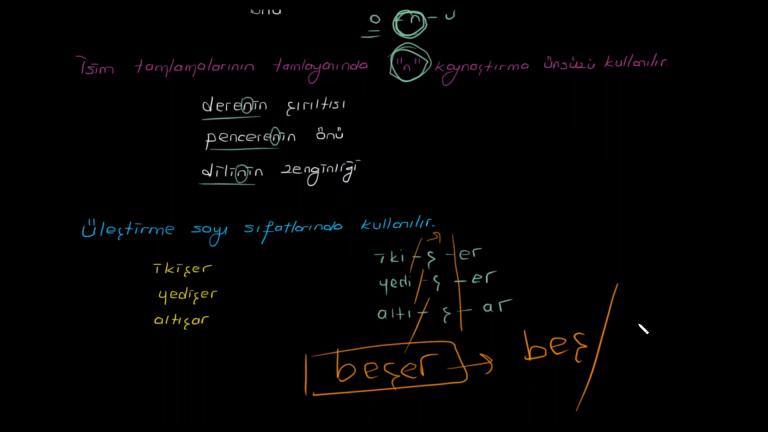 onu
o - n - u
İsim tamlamalarının tamlayanında "n" kaynaştırma ünsüzü kullanılır
derenin şırıltısı
pencerenin önü
dilinin zenginliği
Üleştirme sayı sıfatlarında kullanılır.
ikişer iki - ş - er
yedişer yedi - ş - er
altışar altı - ş - ar
beşer → beş /